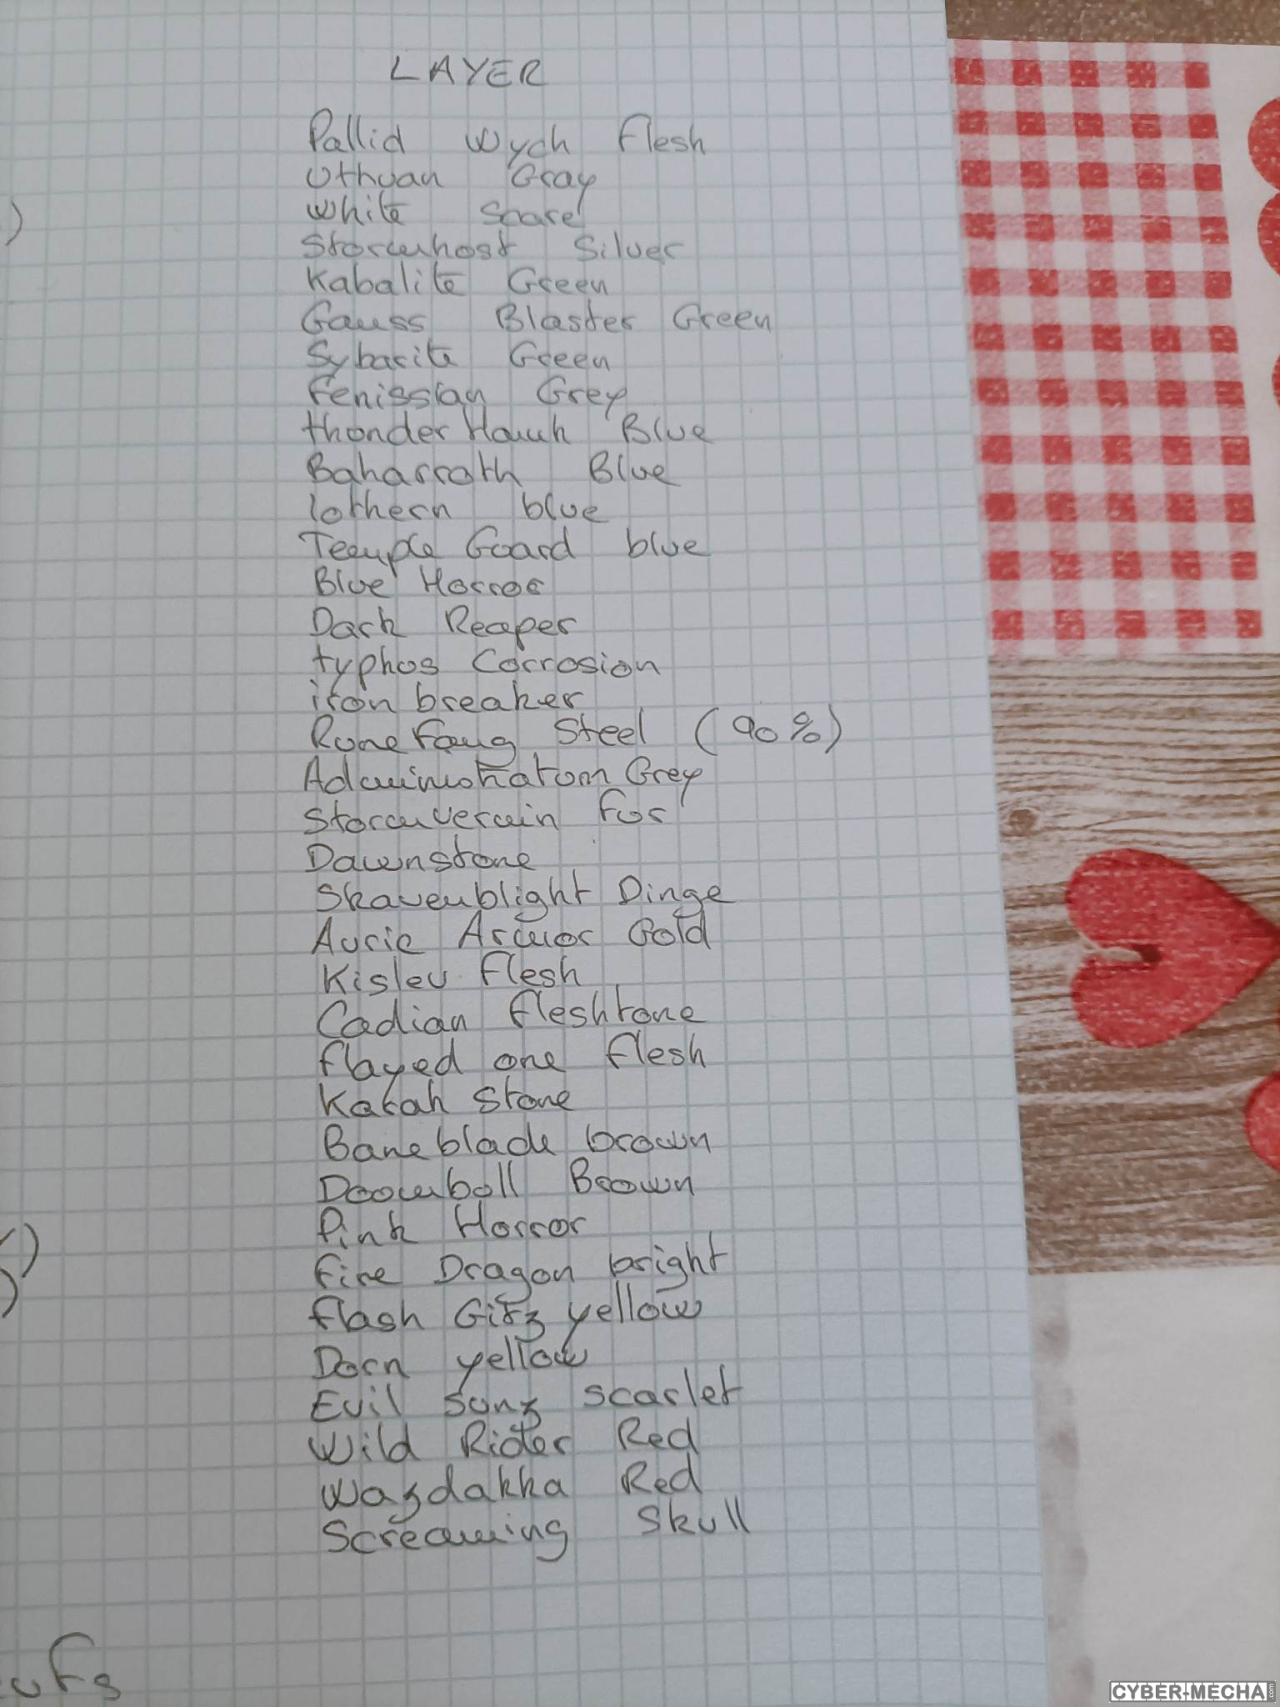 LAYER
Pallid Wych Flesh
Uthuan Gray
White Scare
Stormhost Silver
Kabalite Green
Gauss Blaster Green
Sybarite Green
Fenissian Grey
thunder Hawk Blue
Baharroth Blue
lothern blue
Temple Guard blue
Blue Horror
Dark Reaper
typhus Corrosion
iron breaker
Rune Fang Steel (90%)
Administratum Grey
Stormvermin Fur
Dawnstone
Skavenblight Dinge
Auric Armor Gold
Kislev Flesh
Cadian Fleshtone
flayed one flesh
Karah Stone
Baneblade brown
Doombull Brown
Pink Horror
Fire Dragon bright
flash Gitz yellow
Dorn yellow
Evil Sunz scarlet
Wild Rider Red
Wazdakka Red
Screaming Skull
CYBER-MECHA.com